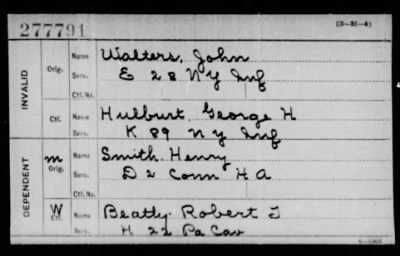 277791
(3-M-4)
INVALID
Orig.
Name Walters, John
Serv. E 28 N Y Inf
Ctf. No.
Ctf.
Name Hulburt, George H
Serv. K 89 N Y Inf
DEPENDENT
m
Orig.
Name Smith Henry
Serv. D 2 Conn H A
Ctf. No.
W
Ctf.
Name Beatty Robert J
Serv. H 22 Pa Cav